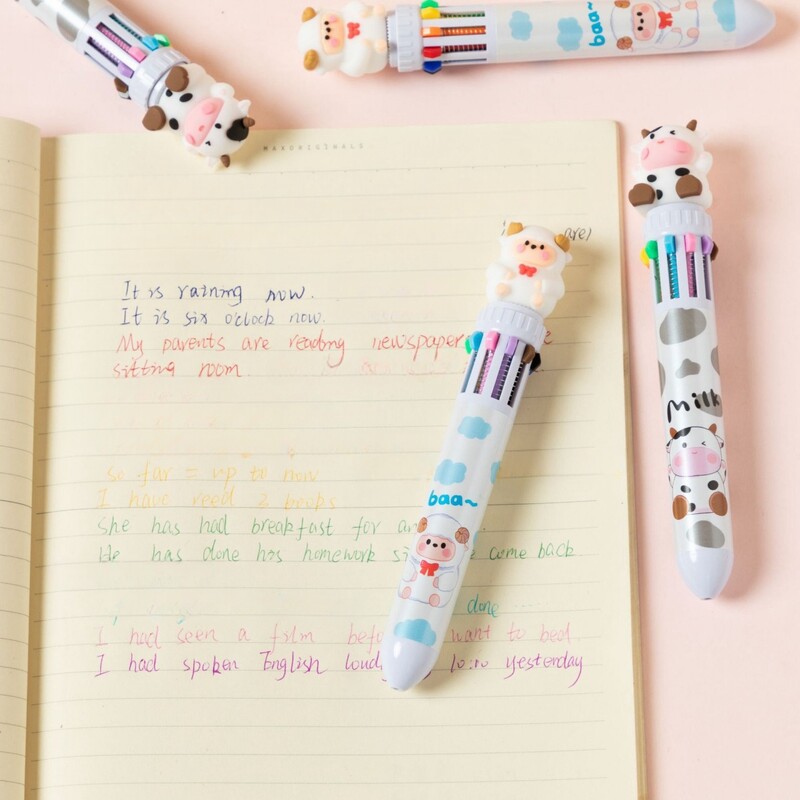 MAXORIGINALS
baa~
It is raining now.
It is six o'clock now.
My parents are reading newspaper
sitting room
so far = up to now
I have reed 2 books
She has had breakfast for an
He has done his homework come back
done ....
I had seen a film befo want to bed
I had spoken English loud 10:10 yesterday
baa~
Milk